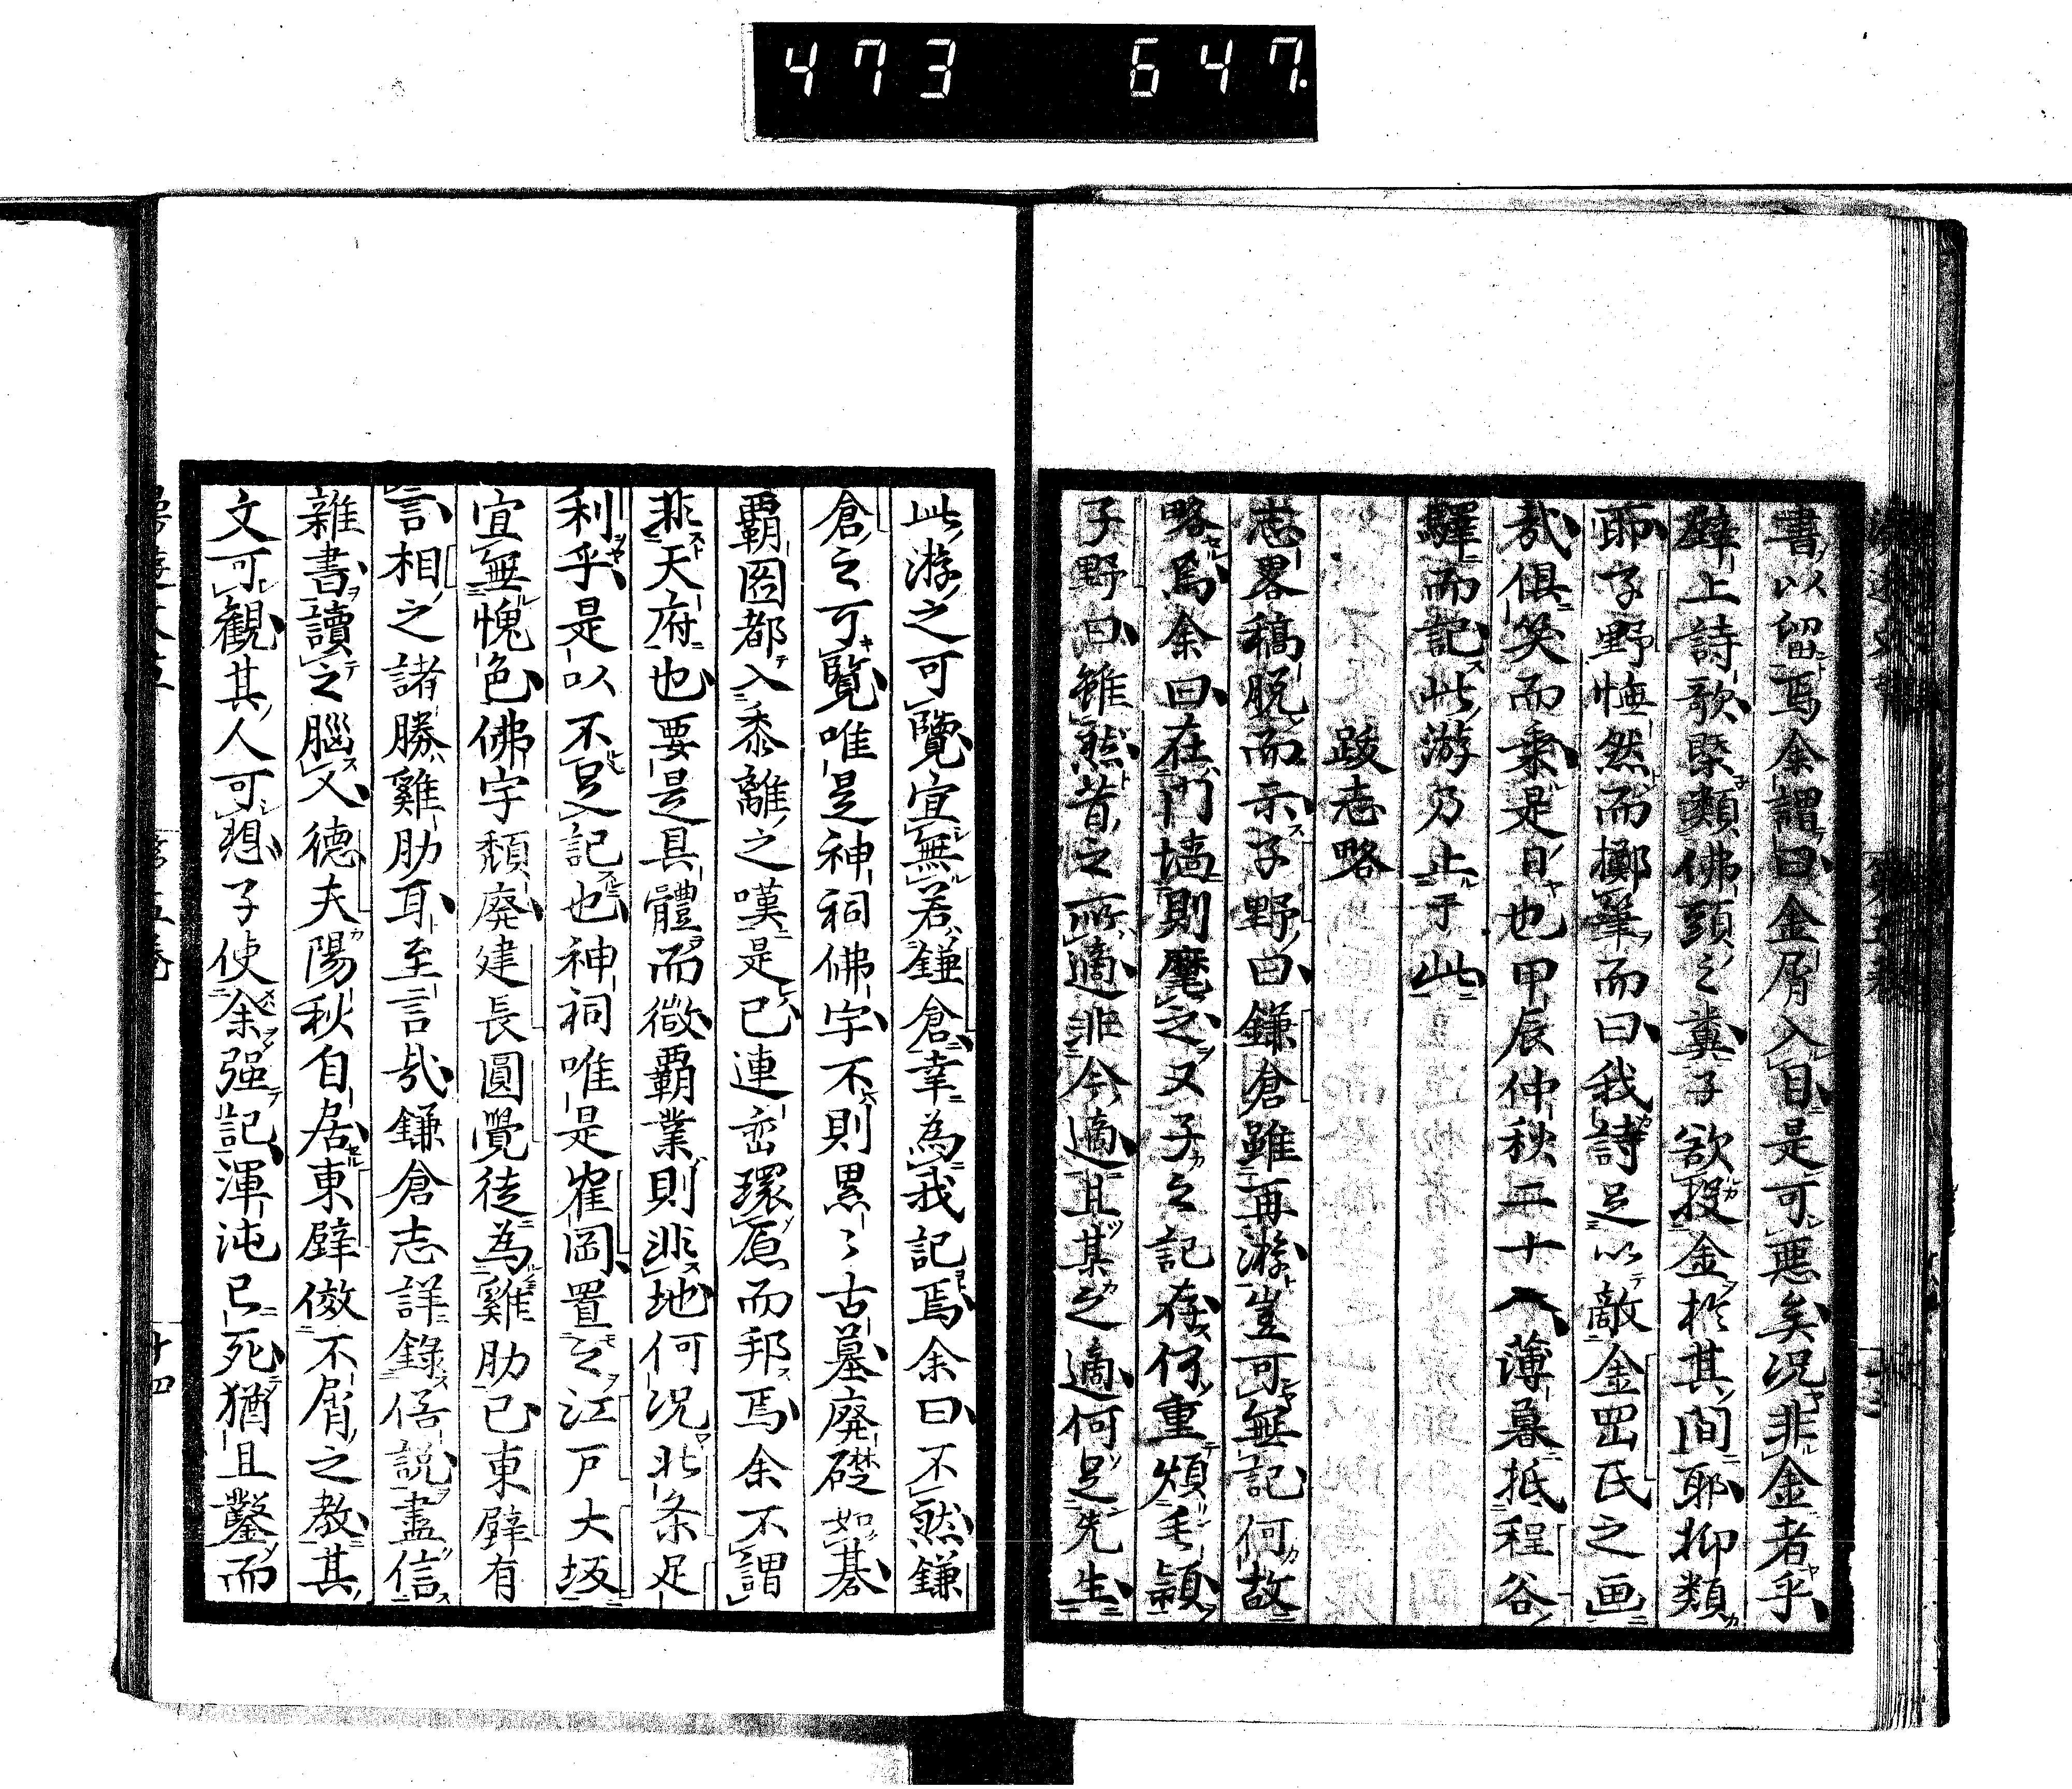 473 647
書以留焉余謂曰金屑入目是可惡矣況非金者乎
壁上詩歌槩類佛頭之糞子欲投金於其間耶抑類
耶子野憮然而擲筆而曰我詩足以敵金岡氏之画
哉俱笑而乗是日也甲辰仲秋二十八薄暮抵程谷
驛而記此游乃止于此
跋志略
志畧稿脱而示子野曰鎌倉雖再游豈可無記何故
略焉余曰在門墻則麾之又子之記存何重煩毛穎
子野曰雖然昔之所適非今適且某之適何足先生
此游之可覽宜無若鎌倉幸為我記焉余曰不然鎌
倉之可覽唯是神祠佛宇不則累々古墓廃礎如碁
覇圀都入黍離之嘆是已連巒環原而邦焉余不謂
非天府也要是具體而微覇業則非地何況北条足
利乎是以不足記也神祠唯是雀岡置之江戸大坂
宜無愧色佛宇頽廃建長圓覺徒為雞肋已東壁有
言相之諸勝雞肋耳至言哉鎌倉志詳錄俗説盡信
雜書讀之腦又德夫陽秋自居東壁倣不屑之教其
文可觀其人可想子使余强記渾沌已死猶且鑿而
十四